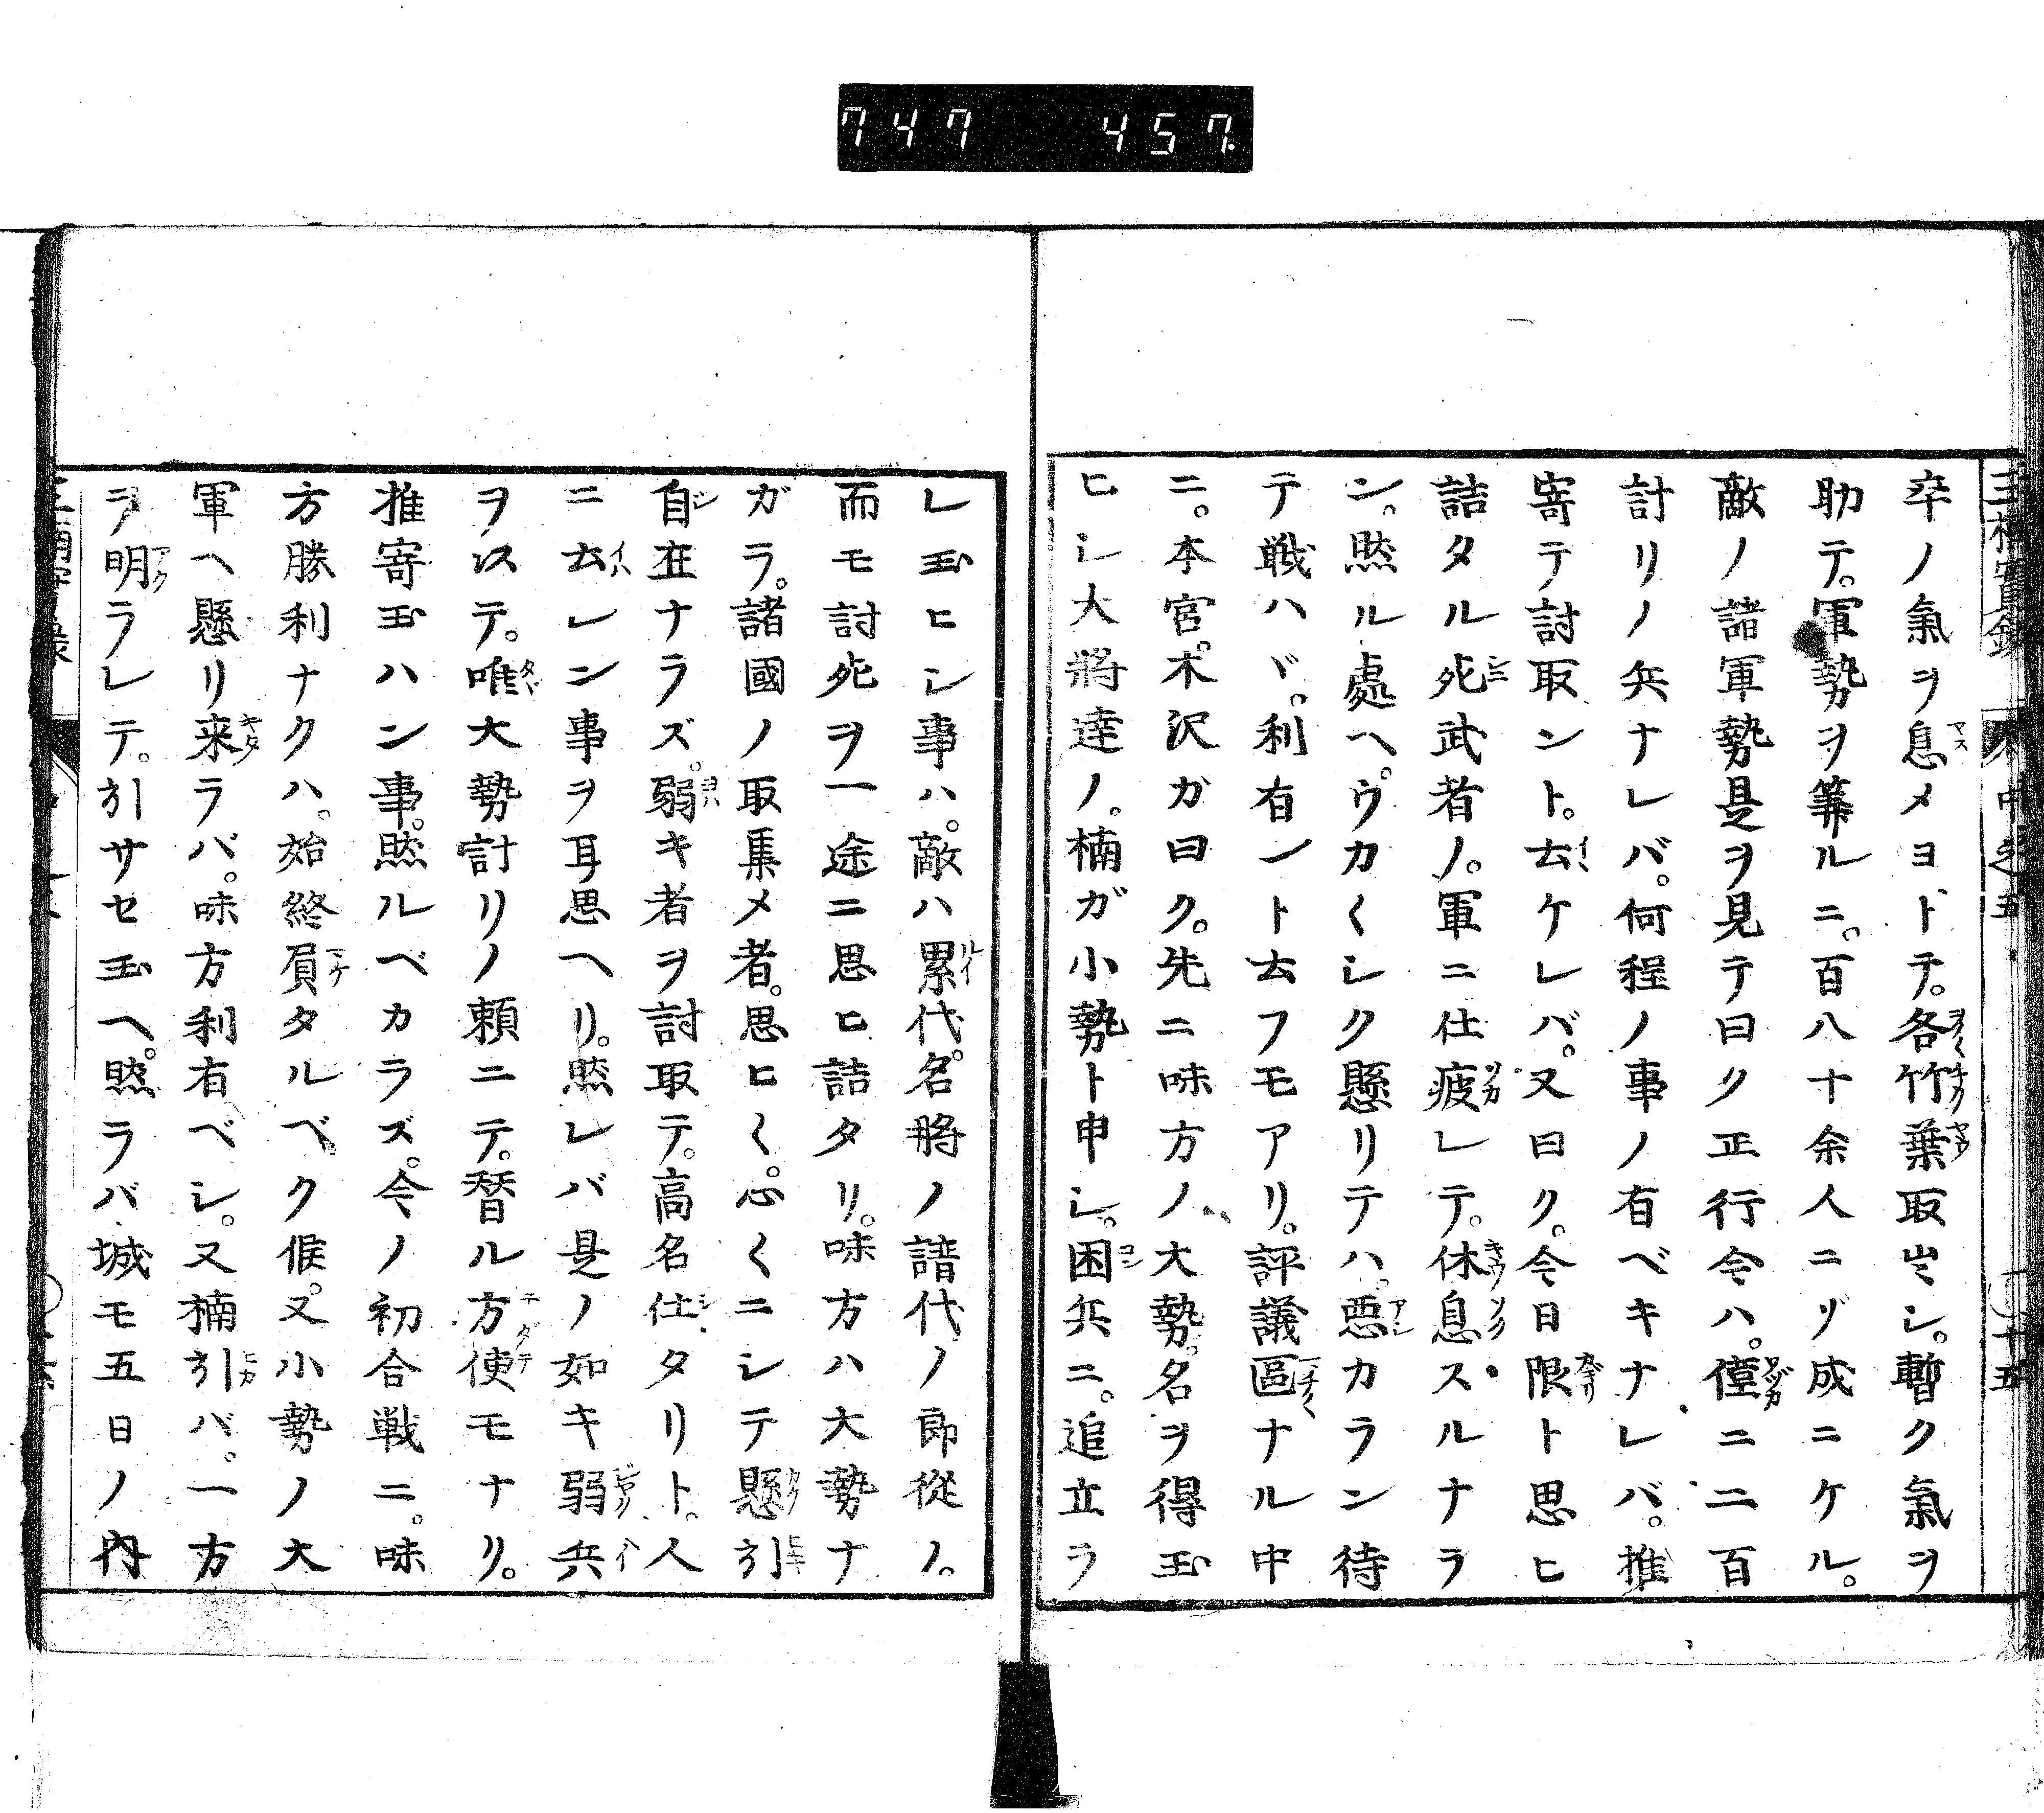 747 457
卒ノ氣ヲ息メヨトテ。各竹葉取出シ。暫ク氣ヲ
助テ。軍勢ヲ筭ルニ。百八十余人ニヅ成ニケル。
敵ノ諸軍勢是ヲ見テ曰ク正行今ハ。僅ニ二百
計リノ兵ナレバ。何程ノ事ノ有ベキナレバ。推
寄テ討取ント。云ケレバ。又曰ク。今日限ト思ヒ
詰タル死武者ノ。軍ニ仕疲レテ。休息スルナラ
ン。然ル處ヘ。ウカ〱シク懸リテハ。悪カラン待
テ戦ハヾ。利有ント云フモアリ。評議區ナル中
ニ。本宮。木沢ガ曰ク。先ニ味方ノ大勢。名ヲ得玉
ヒシ大將達ノ。楠ガ小勢ト申シ。困兵ニ。追立ラ
レ玉ヒシ事ハ。敵ハ累代。名將ノ譜代ノ郎從ノ。
而モ討死ヲ一途ニ思ヒ詰タリ。味方ハ大勢ナ
ガラ。諸國ノ取集メ者。思ヒ〱。心〱ニシテ懸引
自在ナラズ。弱キ者ヲ討取テ。高名仕タリト。人
ニ云レン事ヲ耳思ヘリ。然レバ是ノ如キ弱兵
ヲ以テ。唯大勢計リノ頼ニテ。替ル方便モナリ。
推寄玉ハン事。然ルベカラズ。今ノ初合戦ニ。味
方勝利ナクハ。始終負タルベク候。又小勢ノ大
軍ヘ懸リ来ラバ。味方利有ベシ。又楠引バ。一方
ヲ明ラレテ。引サセ玉ヘ。然ラバ城モ五日ノ内